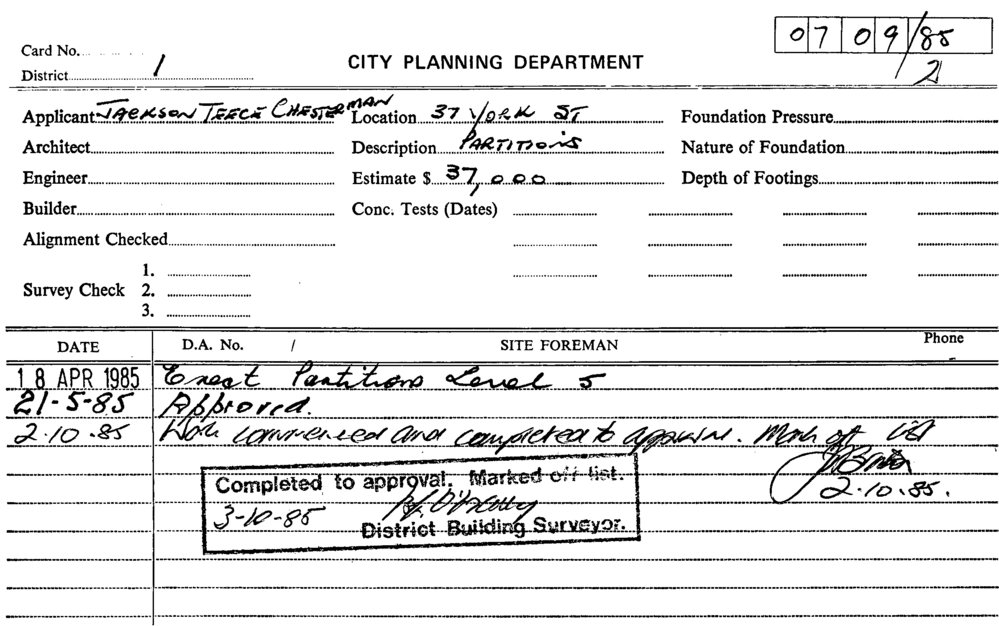 0709/85
Card No.
2
District 1
CITY PLANNING DEPARTMENT
Applicant JACKSON TEECE CHESTERMAN Location 37 YORK ST Foundation Pressure
Architect Description PARTITIONS Nature of Foundation
Engineer Estimate $ 37,000 Depth of Footings
Builder Conc. Tests (Dates)
Alignment Checked
1.
Survey Check 2.
3.
DATE D.A. No. / SITE FOREMAN Phone
18 APR 1985 Erect Partitions Level 5
21-5-85 Approved.
2.10.85 Work commenced and completed to approval. Mark off list
2.10.85.
Completed to approval. Marked off list.
3-10-85
District Building Surveyor.